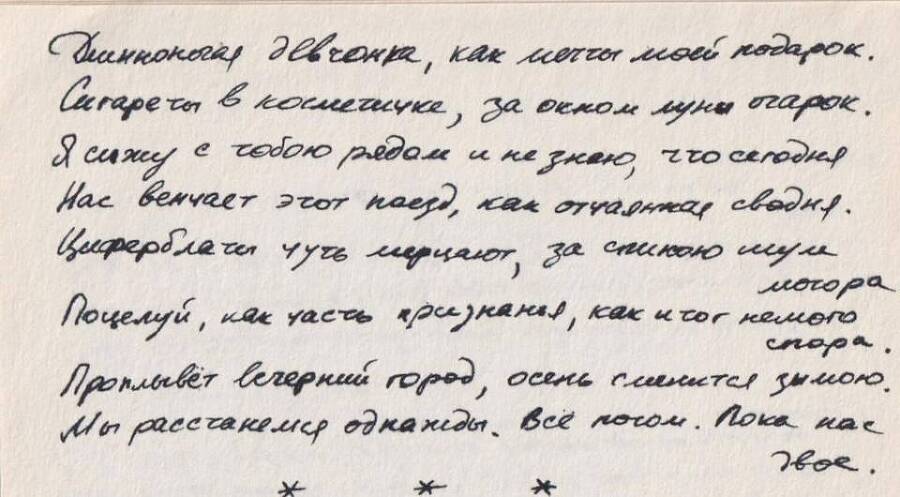 Длинноногая девчонка, как мечты моей подарок.
Сигареты в косметичке, за окном луны огарок.
Я сижу с тобою рядом и не знаю, что сегодня
Нас венчает этот поезд, как отчаянная сводня.
Циферблаты чуть мерцают, за спиною шум
мотора
Поцелуй, как часть признанья, как итог немого
спора.
Проплывёт вечерний город, осень сменится зимою.
Мы расстанемся однажды. Всё потом. Пока нас
двое.
* * *